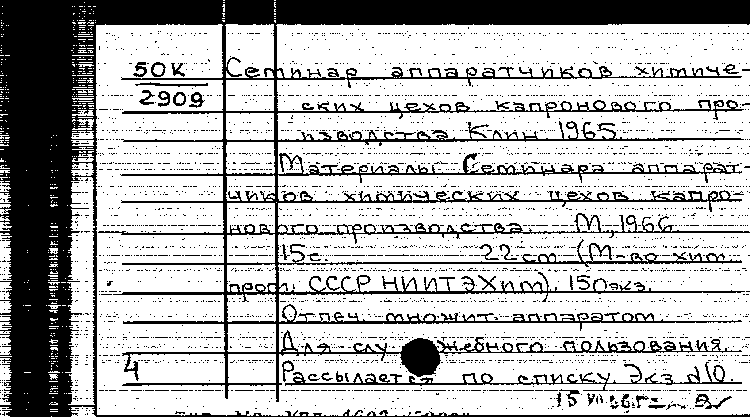 50К Семинар аппаратчиков химиче-
2909 ских цехов капронового про-
изводства. Клин 1965.
Материалы Семинара аппарат-
чиков химических цехов капро-
нового производства. М., 1966
15с. 22 см (М-во хим.
пром. СССР НИИТЭХим). 150экз.
Отпеч. множит. аппаратом.
Для служебного пользования.
4 Рассылается по списку. Экз